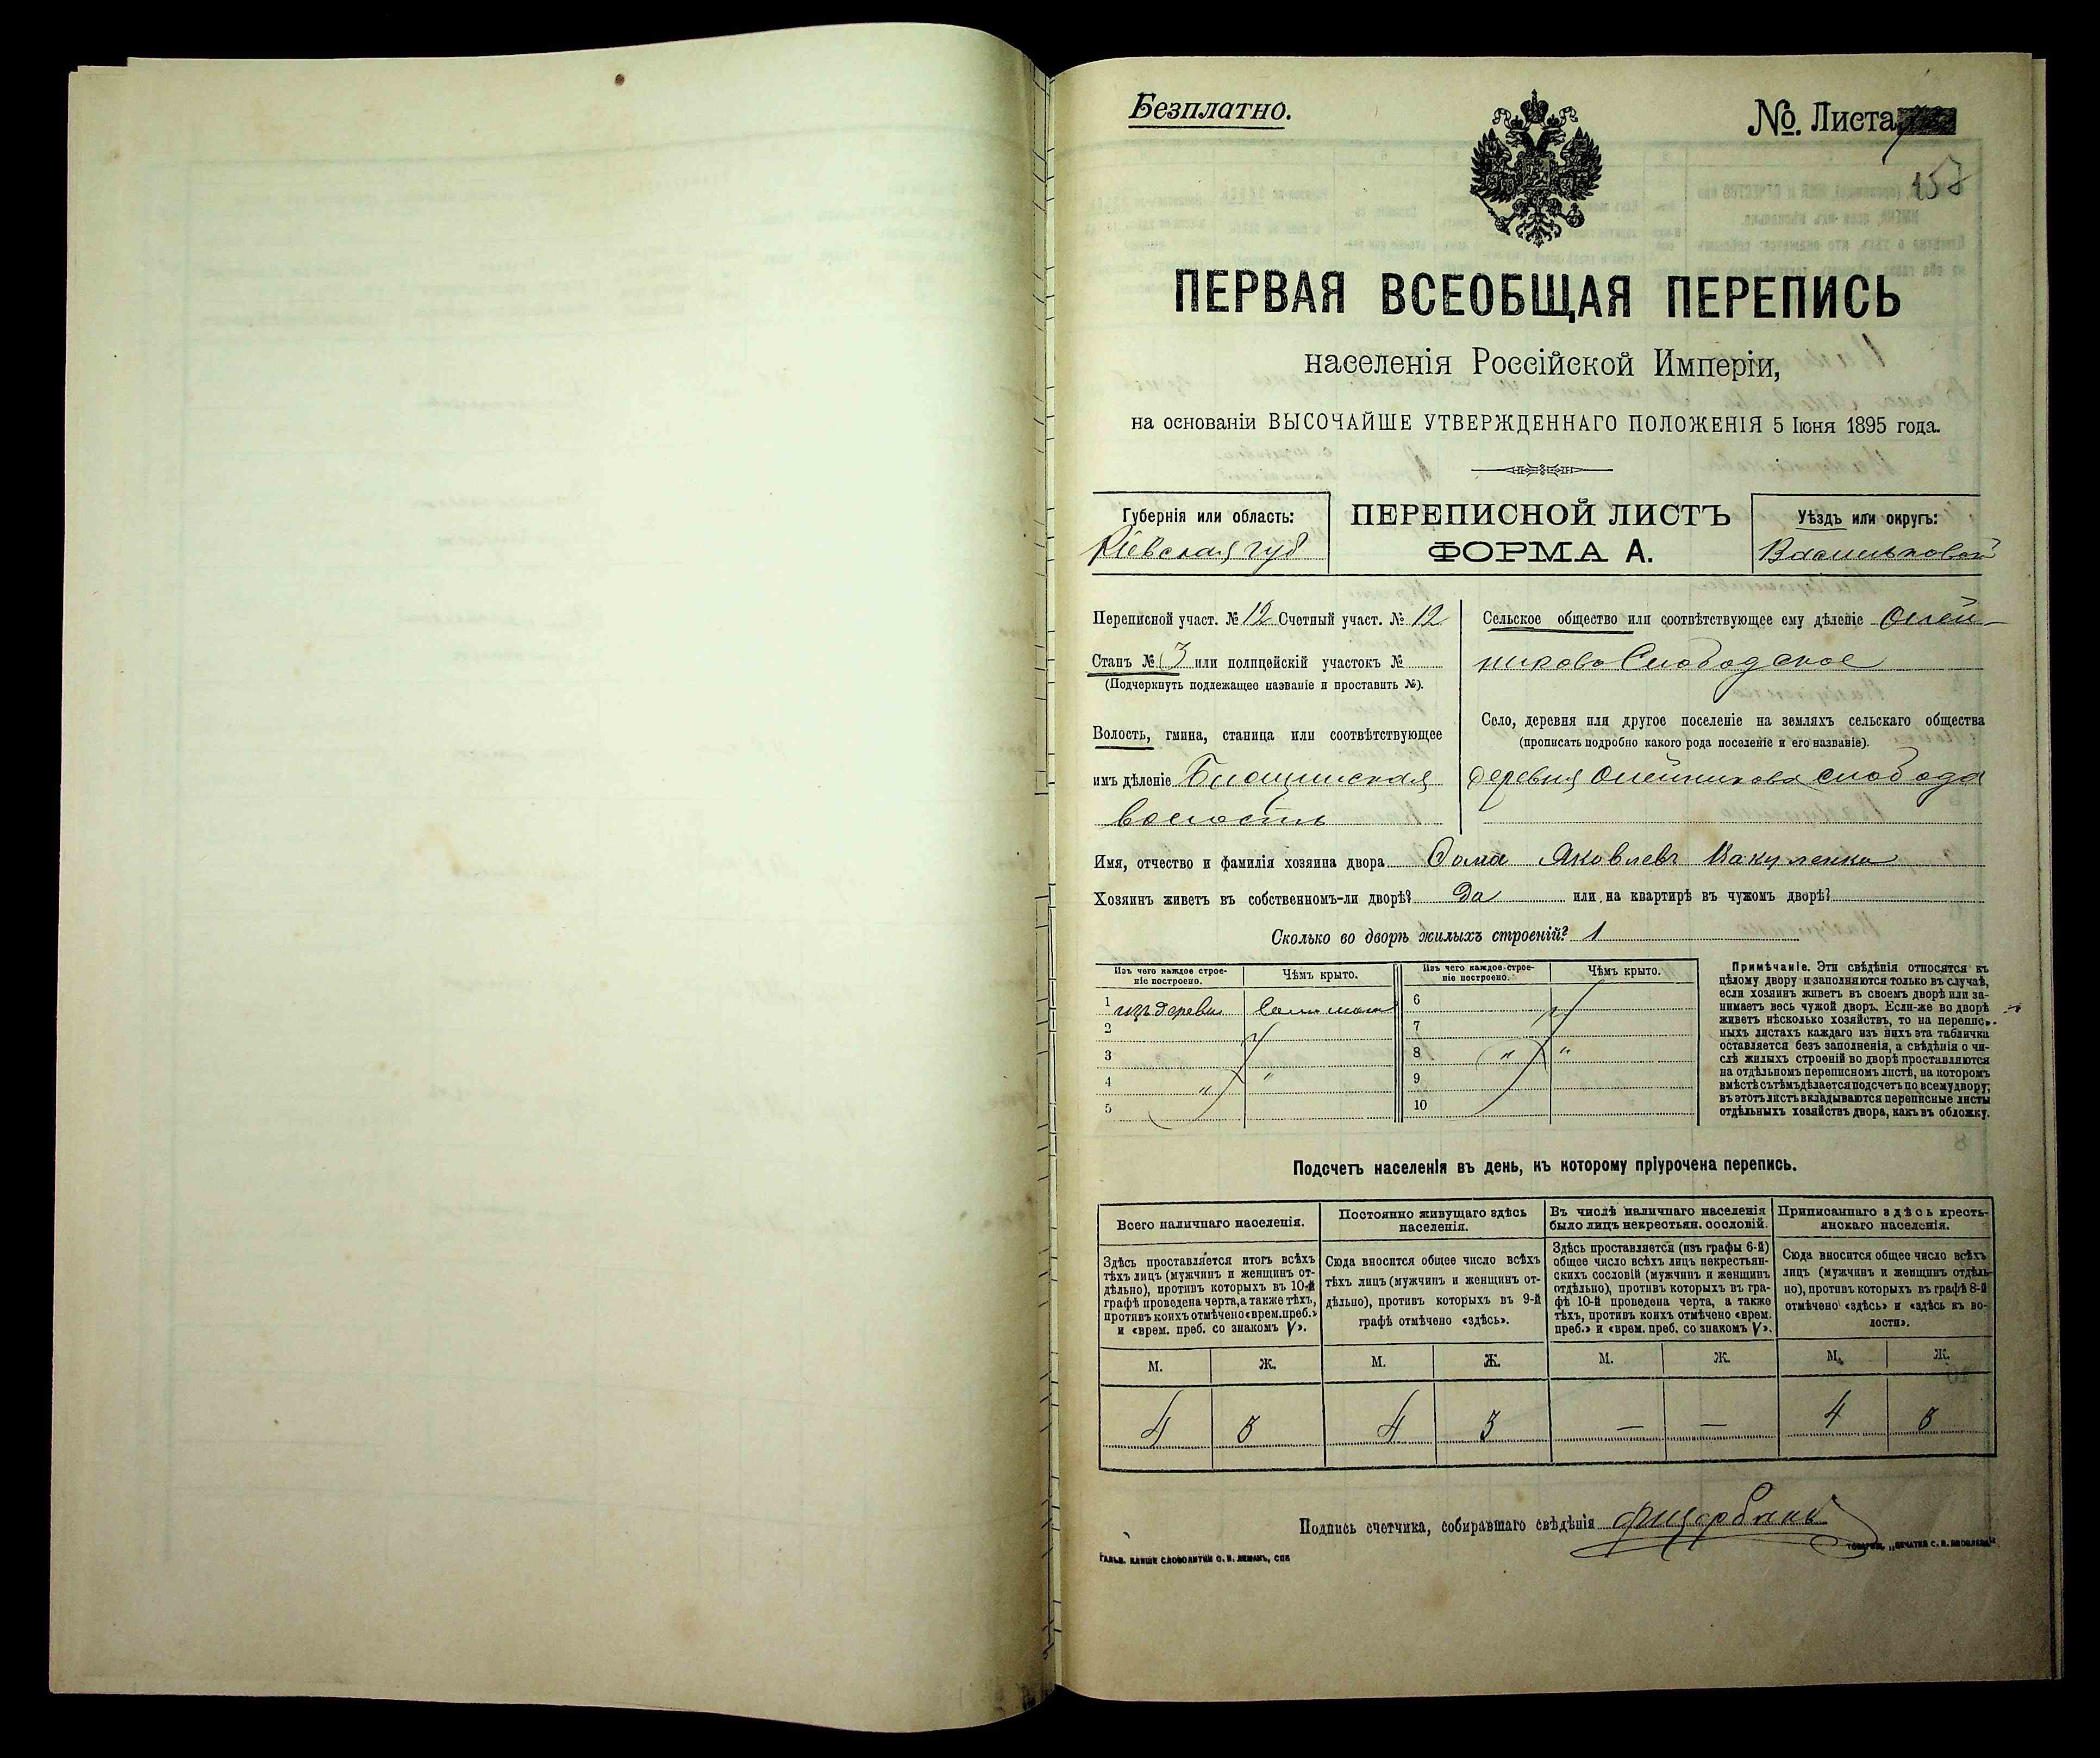 Безплатно.
№. Листа
157
ПЕРВАЯ ВСЕОБЩАЯ ПЕРЕПИСЬ
населенія Россійской Имперіи,
на основаніи ВЫСОЧАЙШЕ УТВЕРЖДЕННАГО ПОЛОЖЕНІЯ 5 Іюня 1895 года.
Губернія или область:
Кіевская губ
ПЕРЕПИСНОЙ ЛИСТЪ
ФОРМА А.
Уѣздъ или округъ:
Васильковскій
Переписной участ. № 12 Счетный участ. № 12
Станъ № 3 или полицейскій участокъ №
(Подчеркнуть подлежащее названіе и проставить №).
Волость, гмина, станица или соотвѣтствующее
имъ дѣленіе
волость
Сельское общество или соотвѣтствующее ему дѣленіе Олей-
никово Слободское
Село, деревня или другое поселеніе на земляхъ сельскаго общества
(прописать подробно какого рода поселеніе и его названіе).
деревня Олейникова слобода
Имя, отчество и фамилія хозяина двора Фома Яковлевъ Вакуленко
Хозяинъ живетъ въ собственномъ-ли дворѣ? Да или на квартирѣ въ чужомъ дворѣ?
Сколько во дворѣ жилыхъ строеній? 1
Изъ чего каждое строе-
ніе построено.
Чѣмъ крыто.
Изъ чего каждое строе-
ніе построено.
Чѣмъ крыто.
1 изъ дерева Соломою
2
3
4 " "
5
6
7
8 " "
9
10
Примѣчаніе. Эти свѣдѣнія относятся къ
цѣлому двору и заполняются только въ случаѣ,
если хозяинъ живетъ въ своемъ дворѣ или за-
нимаетъ весь чужой дворъ. Если-же во дворѣ
живетъ нѣсколько хозяйствъ, то на перепис-
ныхъ листахъ каждаго изъ нихъ эта табличка
оставляется безъ заполненія, а свѣдѣнія о чи-
слѣ жилыхъ строеній во дворѣ проставляются
на отдѣльномъ переписномъ листѣ, на которомъ
вмѣстѣ съ тѣмъ дѣлается подсчетъ по всему двору;
въ этотъ листъ вкладываются переписные листы
отдѣльныхъ хозяйствъ двора, какъ въ обложку.
Подсчетъ населенія въ день, къ которому пріурочена перепись.
Всего наличнаго населенія.
Постоянно живущаго здѣсь
населенія.
Въ числѣ наличнаго населенія
было лицъ некрестьян. сословій.
Приписаннаго здѣсь кресть-
янскаго населенія.
Здѣсь проставляется итогъ всѣхъ
тѣхъ лицъ (мужчинъ и женщинъ от-
дѣльно), противъ которыхъ въ 10-й
графѣ проведена черта, а также тѣхъ,
противъ коихъ отмѣчено «врем. преб.»
и «врем. преб. со знакомъ V».
Сюда вносится общее число всѣхъ
тѣхъ лицъ (мужчинъ и женщинъ от-
дѣльно), противъ которыхъ въ 9-й
графѣ отмѣчено «здѣсь».
Здѣсь проставляется (изъ графы 6-й)
общее число всѣхъ лицъ некрестьян-
скихъ сословій (мужчинъ и женщинъ
отдѣльно), противъ которыхъ въ гра-
фѣ 10-й проведена черта, а также
тѣхъ, противъ коихъ отмѣчено «врем.
преб.» и «врем. преб. со знакомъ V».
Сюда вносится общее число всѣхъ
лицъ (мужчинъ и женщинъ отдѣль-
но), противъ которыхъ въ графѣ 8-й
отмѣчено «здѣсь» и «здѣсь къ во-
лости».
М. Ж. М. Ж. М. Ж. М. Ж.
4 3 4 3 — — 4 3
Подпись счетчика, собиравшаго свѣдѣнія
Гальв. клише словолитни О. И. Леманъ, СПБ
Товарищ. „Печатня С. П. Яковлева“